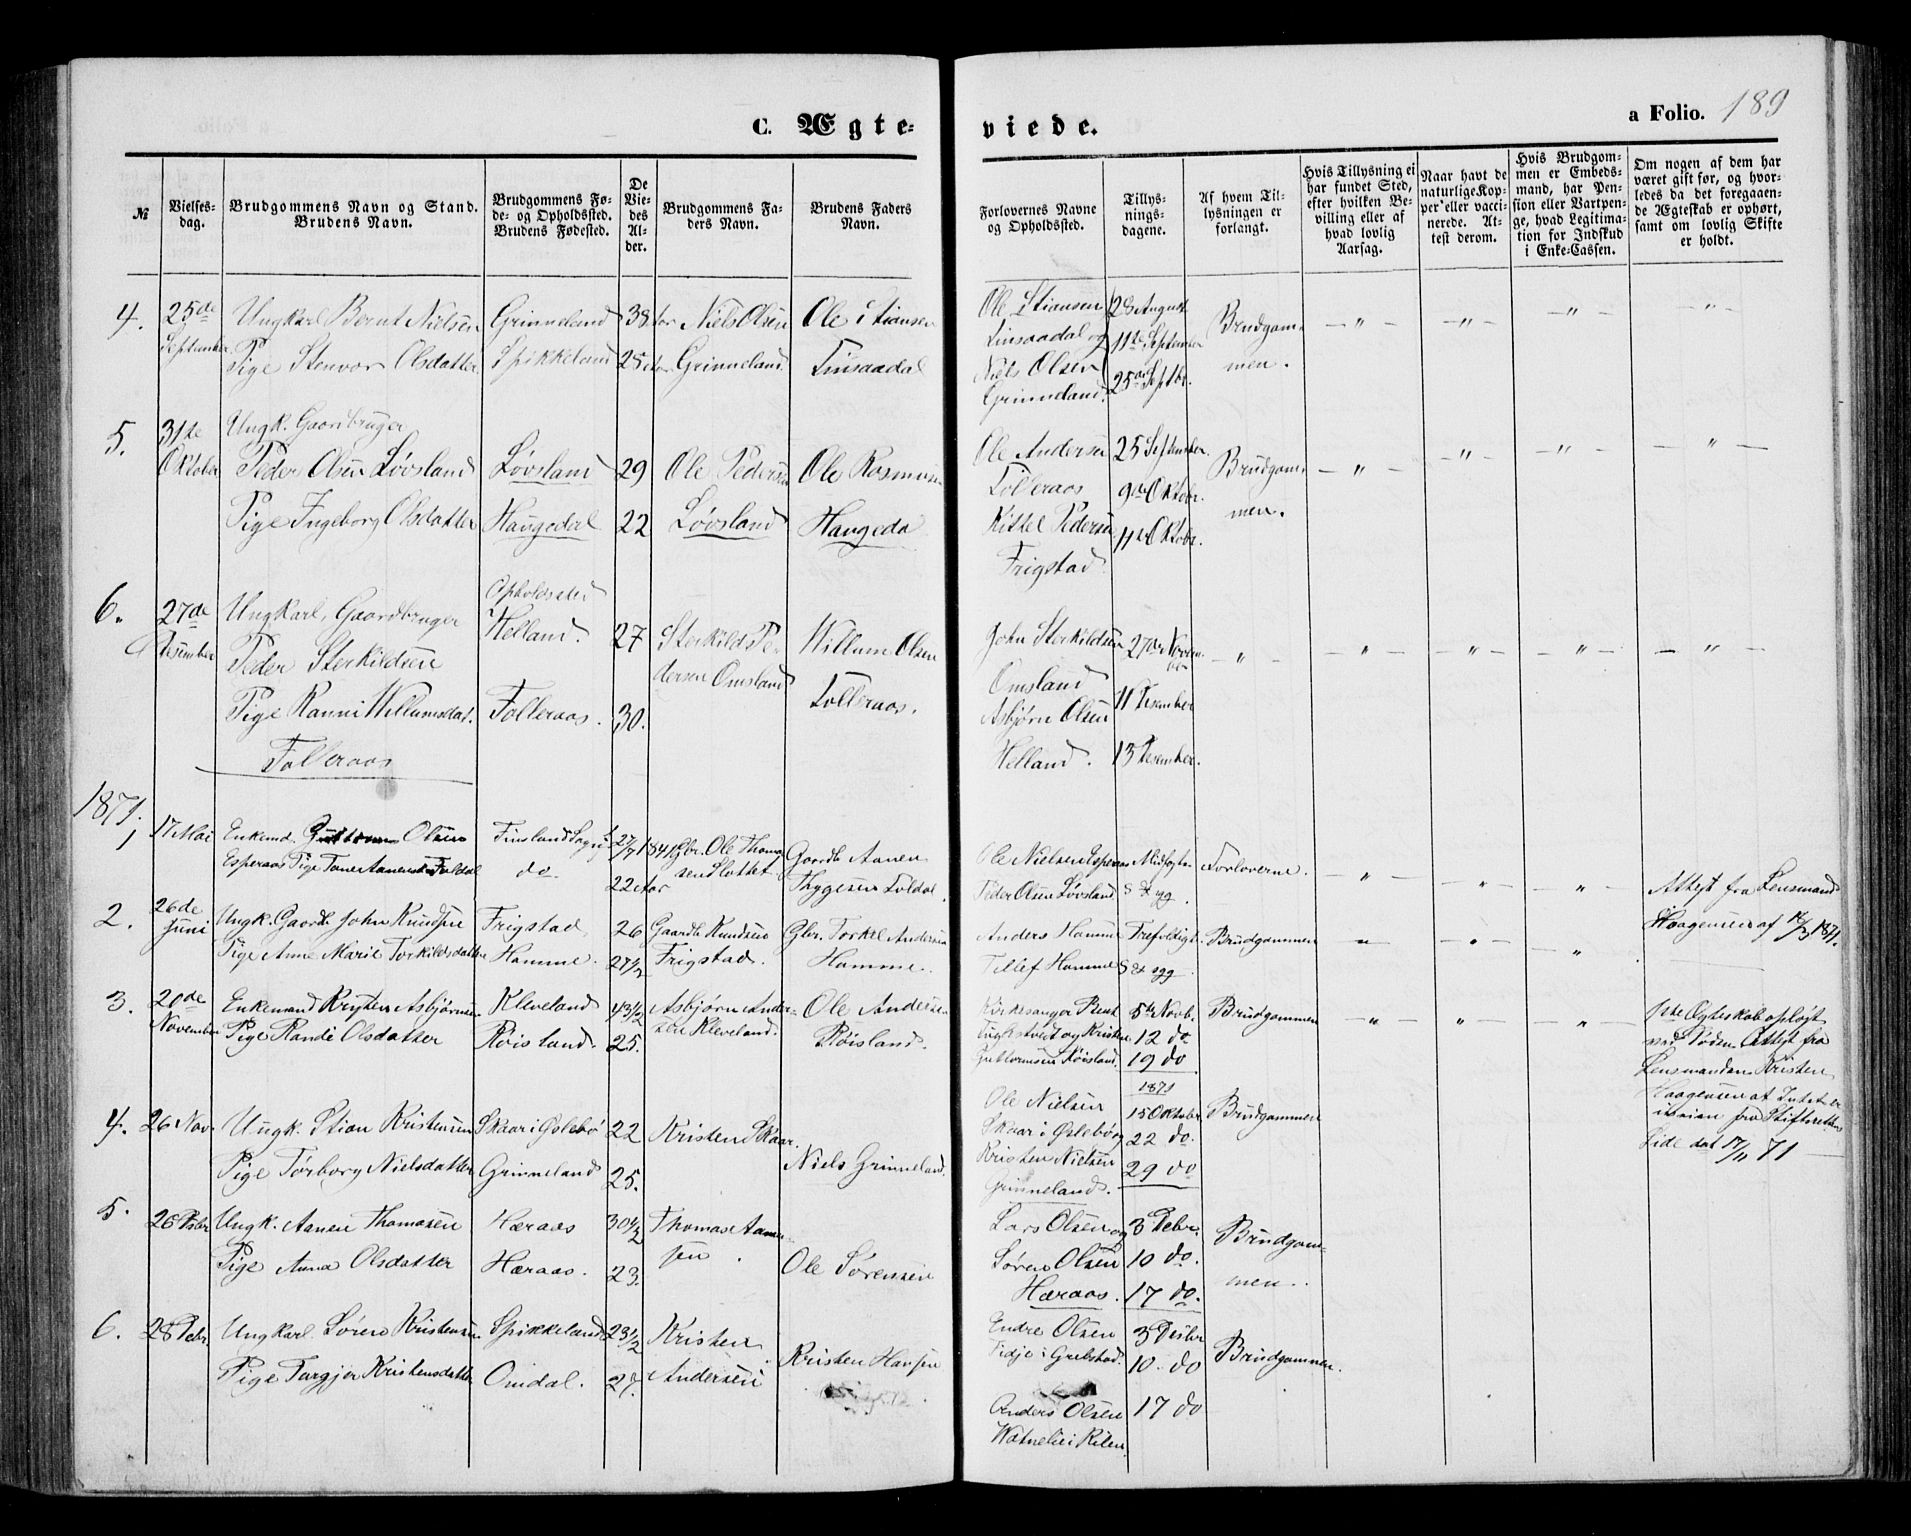 C. Ægte=
viede.
a Folio. 189
№
Vielses=
dag.
Brudgommens Navn og Stand.
Brudens Navn.
Brudgommens Fø=
de= og Opholdssted.
Brudens Fødested.
De
Vie=
des
Al=
der.
Brudgommens Fa=
ders Navn.
Brudens Faders
Navn.
Forlovernes Navne
og Opholdssted.
Tillys=
nings=
dagene.
Af hvem Til=
lysningen er
forlangt.
Hvis Tillysning ei
har fundet Sted,
efter hvilken Be=
villing eller af
hvad lovlig
Aarsag.
Naar havt de
naturlige Kop=
per eller vacci=
nerede. At=
test derom.
Hvis Brudgom=
men er Embeds=
mand, har Pen=
sion eller Vartpen=
ge, hvad Legitima=
tion for Indskud
i Enke=Cassen.
Om nogen af dem har
været gift før, og hvor=
ledes da det foregaaen=
de Ægteskab er ophørt,
samt om lovlig Skifte
er holdt.
4.
25de
September
Ungkarl Bernt Nielsen
Pige Stenvor Olsdatter
Grinneland
Spikkeland
38
25
Niels Olsen
Grinneland
Ole Stiansen
Ole Stiansen
og
Niels Olsen
Grinneland.
28 August
11te September
25de Septbr.
Brudgom-
men.
5.
31te
Oktober
Ungk. Gaardbruger
Peder Olsen Løvsland
Pige Ingeborg Olsdatter
Løvsland
Haugedal
29
22
Ole Pedersen
Løvsland
Ole Rasmusen
Haugeda
Ole Andersen
Tolleraas
Kittel Pedersen
Frigstad
25 September
9de Oktobr.
11te Oktobr.
Brudgom-
men.
6.
27de
Desember
Ungkarl, Gaardbruger
Peder Sterkildsen
Pige Ranni Willumsdat.
Tolleraas
Opholdssted
Helland.
Tolleraas.
27
30.
Sterkild Pe-
dersen Omsland
Willum Olsen
Tolleraas.
John Sterkildsen
Omsland
Asbjørn Olsen
Helland.
27de Novem-
ber
11 Desember
13 Desember.
1871.
1
17 Mai
Enkemd. Guttorm Olsen
Esperaas Pige Tone Aanensd. Foldal
Finsland Sogn
do
22 Aar
Gbr. Ole Thoma
sen Slottet
Gaardb Aanen
Thygesen Foldal.
Ole Nielsen Esperaas
Peder Olsen Løvsland
Forloverne.
Attest fra Lensmand
Haagensen af
2.
26de
Juni
Ungk. Gaardb John Knudsen
Pige Anne Marie Torkildsdatter
Frigstad
Homme.
26
27½
Gaardb Knudsen
Frigstad.
Gbr. Torkel Andersen
Homme.
Anders Homme
Tellef Homme
Brudgommen
3.
20de
November
Enkemand Kristen Asbjørnsen
Pige Randi Olsdatter
Kleveland
Røisland.
43½
25.
Asbjørn Ander-
sen Kleveland.
Ole Andersen
Røisland.
Kirkesanger
og Kristen
Guttormsen Røisland.
5te Novb.
12 do
19 do
Brudgommen
1ste Ægteskab opløst
ved Døden Attest fra
Lensmanden Kristen
Haagensen
fra Skifteretten
Side dat 17/11 71
4.
26 Nov.
Ungk. Stian Kristensen
Pige Torborg Nielsdatter
Skaar i Øslebø
Grinneland
22
25.
Kristen Skaar.
Niels Grinneland.
Ole Nielsen
Skaar i Øslebø og
Kristen Nielsen
Grinneland.
1871
15 Oktober
22 do.
29 do
Brudgommen
5.
26 Desbr
Ungk. Aanen Thomasen
Pige Anna Olsdatter
Hæraas
Hæraas.
30½
23.
Thomas Aanen-
sen
Ole Sørensen
Lars Olsen og
Søren Olsen
Hæraas.
3 Debr.
10 do.
17 do.
Brudgom-
men.
6.
28 Debr.
Ungkarl. Søren Kristensen
Pige Torgjer Kristensdatter
Spikkeland
Omdal.
23½
27.
Kristen
Andersen
Kristen Hansen
Endre Olsen
Anders Olsen
3 Desbr
10. do
17 do
Brudgommen.